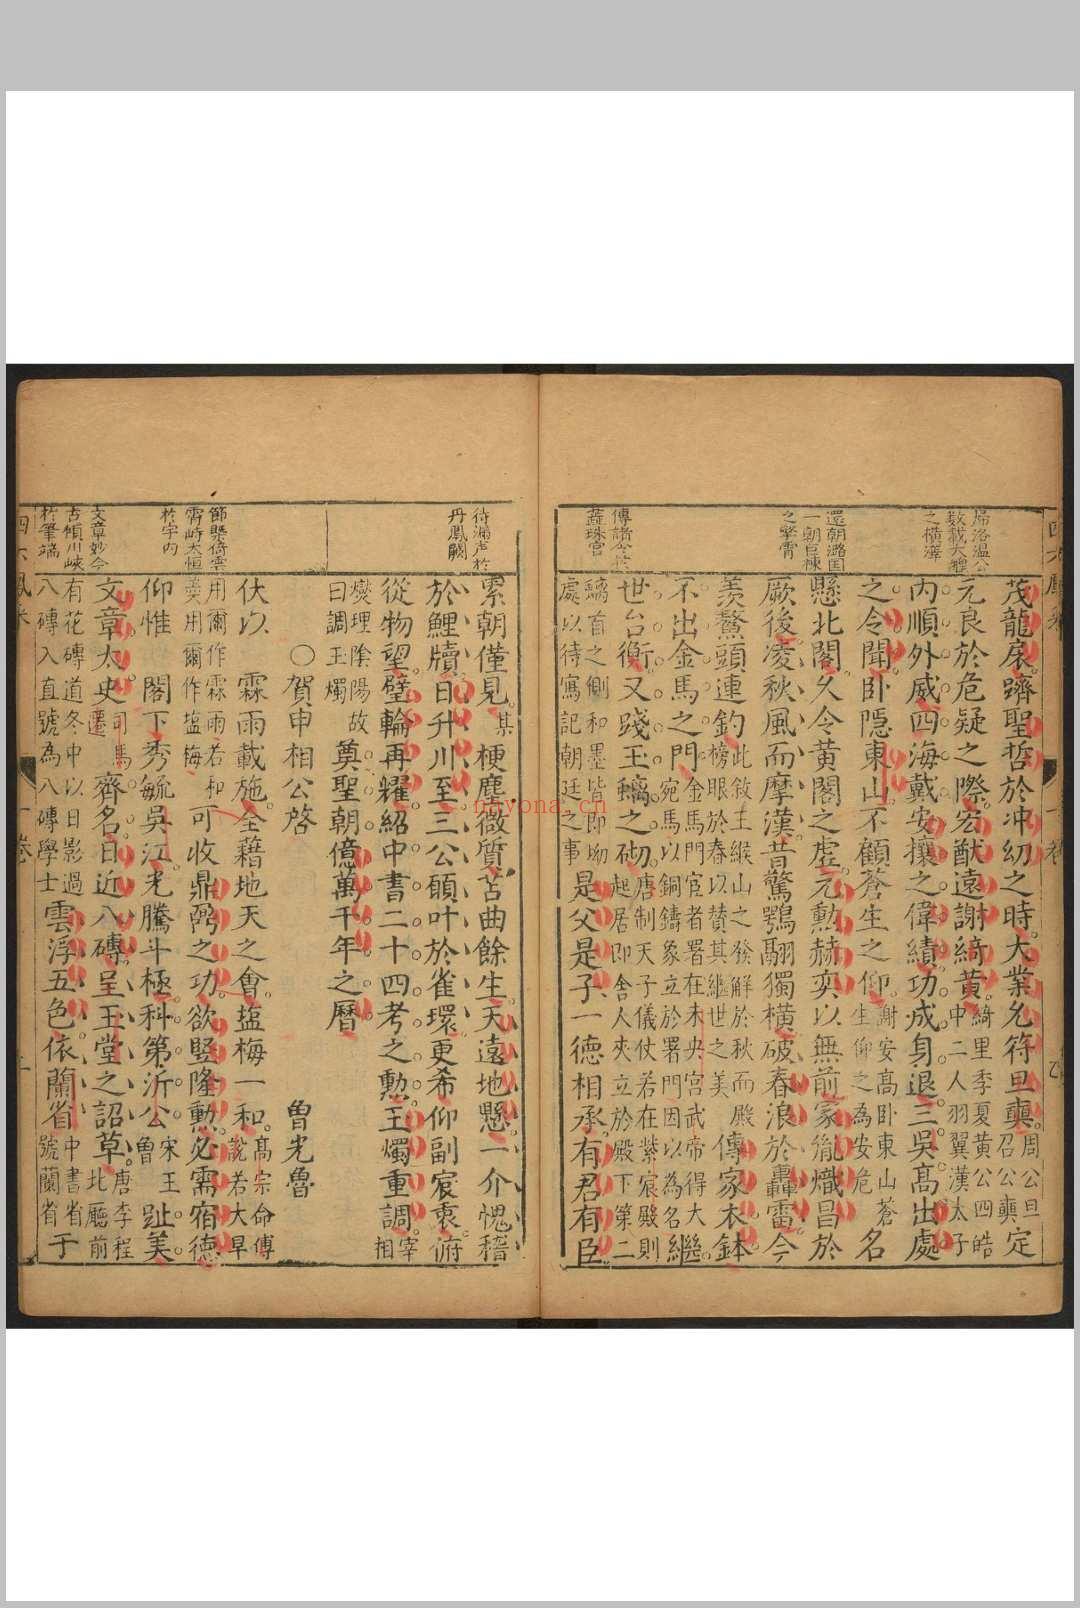 歸洛溫公
數載大禮
之橫舉
還朝潞国
一朝巨棟
之擎霄
傳諸令於
蕋珠宮
茂龍扆躋聖哲於冲幼之時大業允符旦奭周公旦召公奭定
元良於危疑之際宏猷遠謝綺黄綺里季夏黄公四皓中二人羽翼漢太子
内順外威四海戴安攘之偉績功成身退三吳高出處
之令聞卧隱東山不顧蒼生之仰謝安高卧東山蒼生仰之為安危名
懸北閣久令黄閣之虚元勳赫奕以無前家胤熾昌於
厥後凌秋風而摩漢昔驚鶚翮獨橫破春浪於轟雷今
羨鰲頭連釣此敘王緱山之發解於秋而殿榜眼於春以賛其繼世之美傳家衣鉢
不出金馬之門金馬門宦者署在未央宮武帝得大宛馬以銅鑄象立於署門因以為名繼
世台衡又踐玉螭之砌唐制天子儀仗若在紫宸殿則起居即舍人夾立於殿下第二
螭首之側和墨皆即坳處以待寫記朝廷之事是父是子一德相承有君有臣
待漏声於
丹鳳闕
節懸倚雲
霄峙太恒
於宇内
文章妙今
古傾川峽
於筆端
累朝僅見某梗塵微質苫曲餘生天遠地懸一介愧稽
於鯉牘日升川至三公願叶於雀環更希仰副宸衷俯
從物望璧輪再耀紹中書二十四考之勳玉燭重調宰相
燮理陰陽故曰調玉燭奠聖朝億萬千年之曆
○賀申相公啓 魯光魯
伏以 霖雨載施全藉地天之會塩梅一和高宗命傅說若大旱
用爾作霖雨若和羹用爾作塩梅可收鼎鼐之功欲竪隆勳必需宿德
仰惟 閣下秀毓吳江光騰斗極科第沂公宋王曽趾美
文章太史司馬遷齊名日近八磚呈玉堂之詔草唐李程北廳前
有花磚道冬中以日影過八磚入直號為八磚學士雲浮五色依蘭省中書省號蘭省于
四六鳳采
一卷
nayona.cn